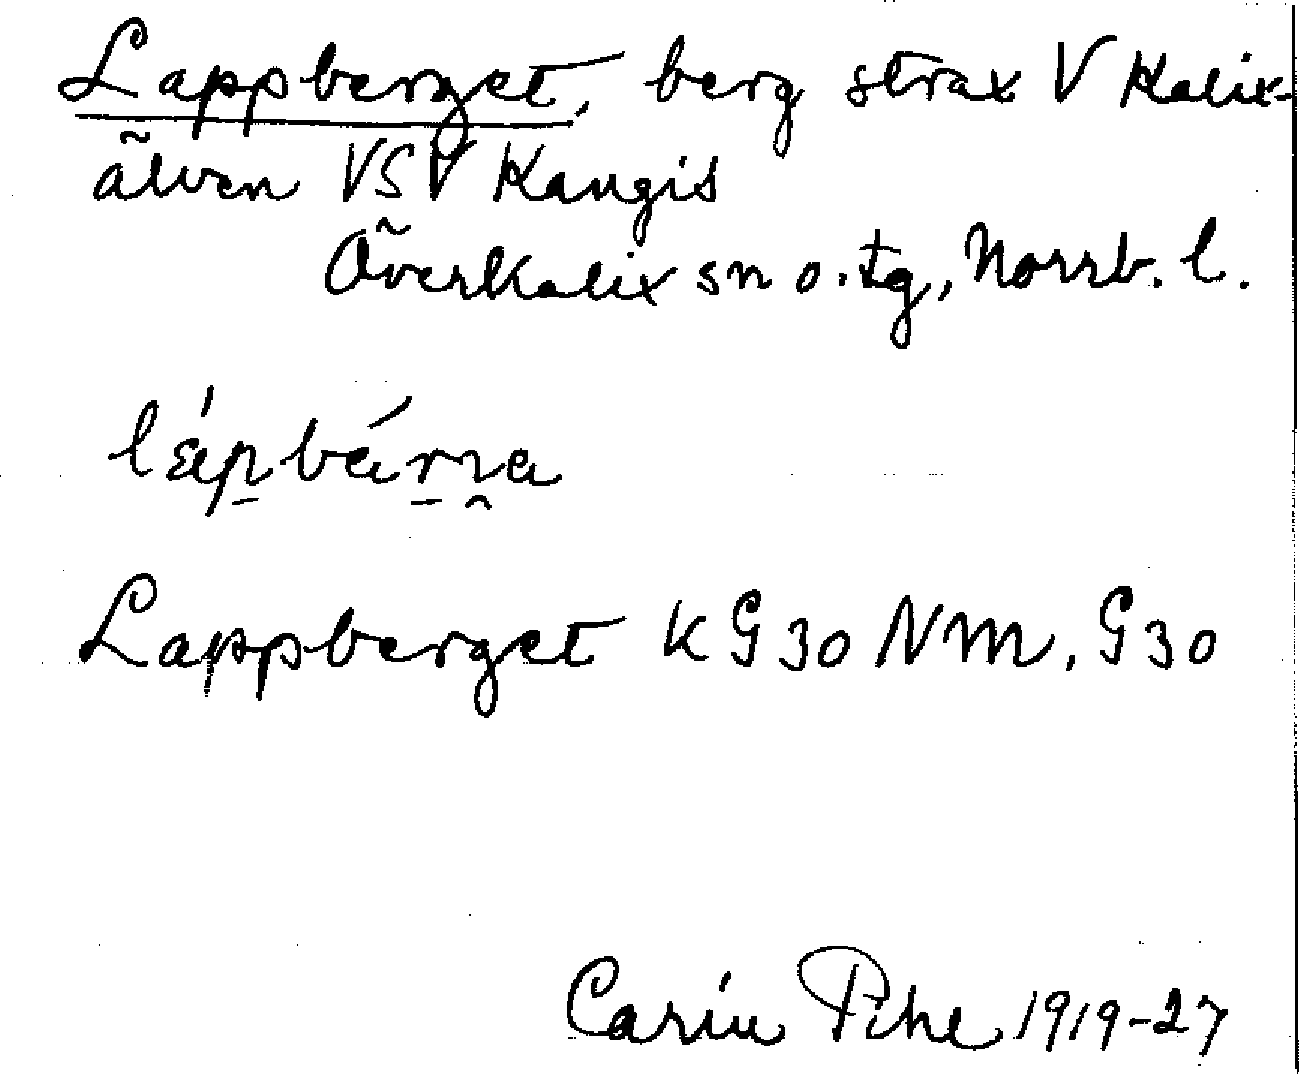 Lappberget, berg strax V Kalix-
älven VSV Kangis
Överkalix sn o. tg, Norrb. l.
Lappberget k G 30 NM, G 30
Carin Pihl 1919-27